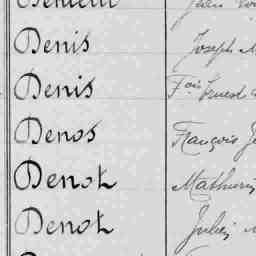 Denis Joseph
Denis Fois Ernest
Denos François
Denot Mathurin
Denot Julien